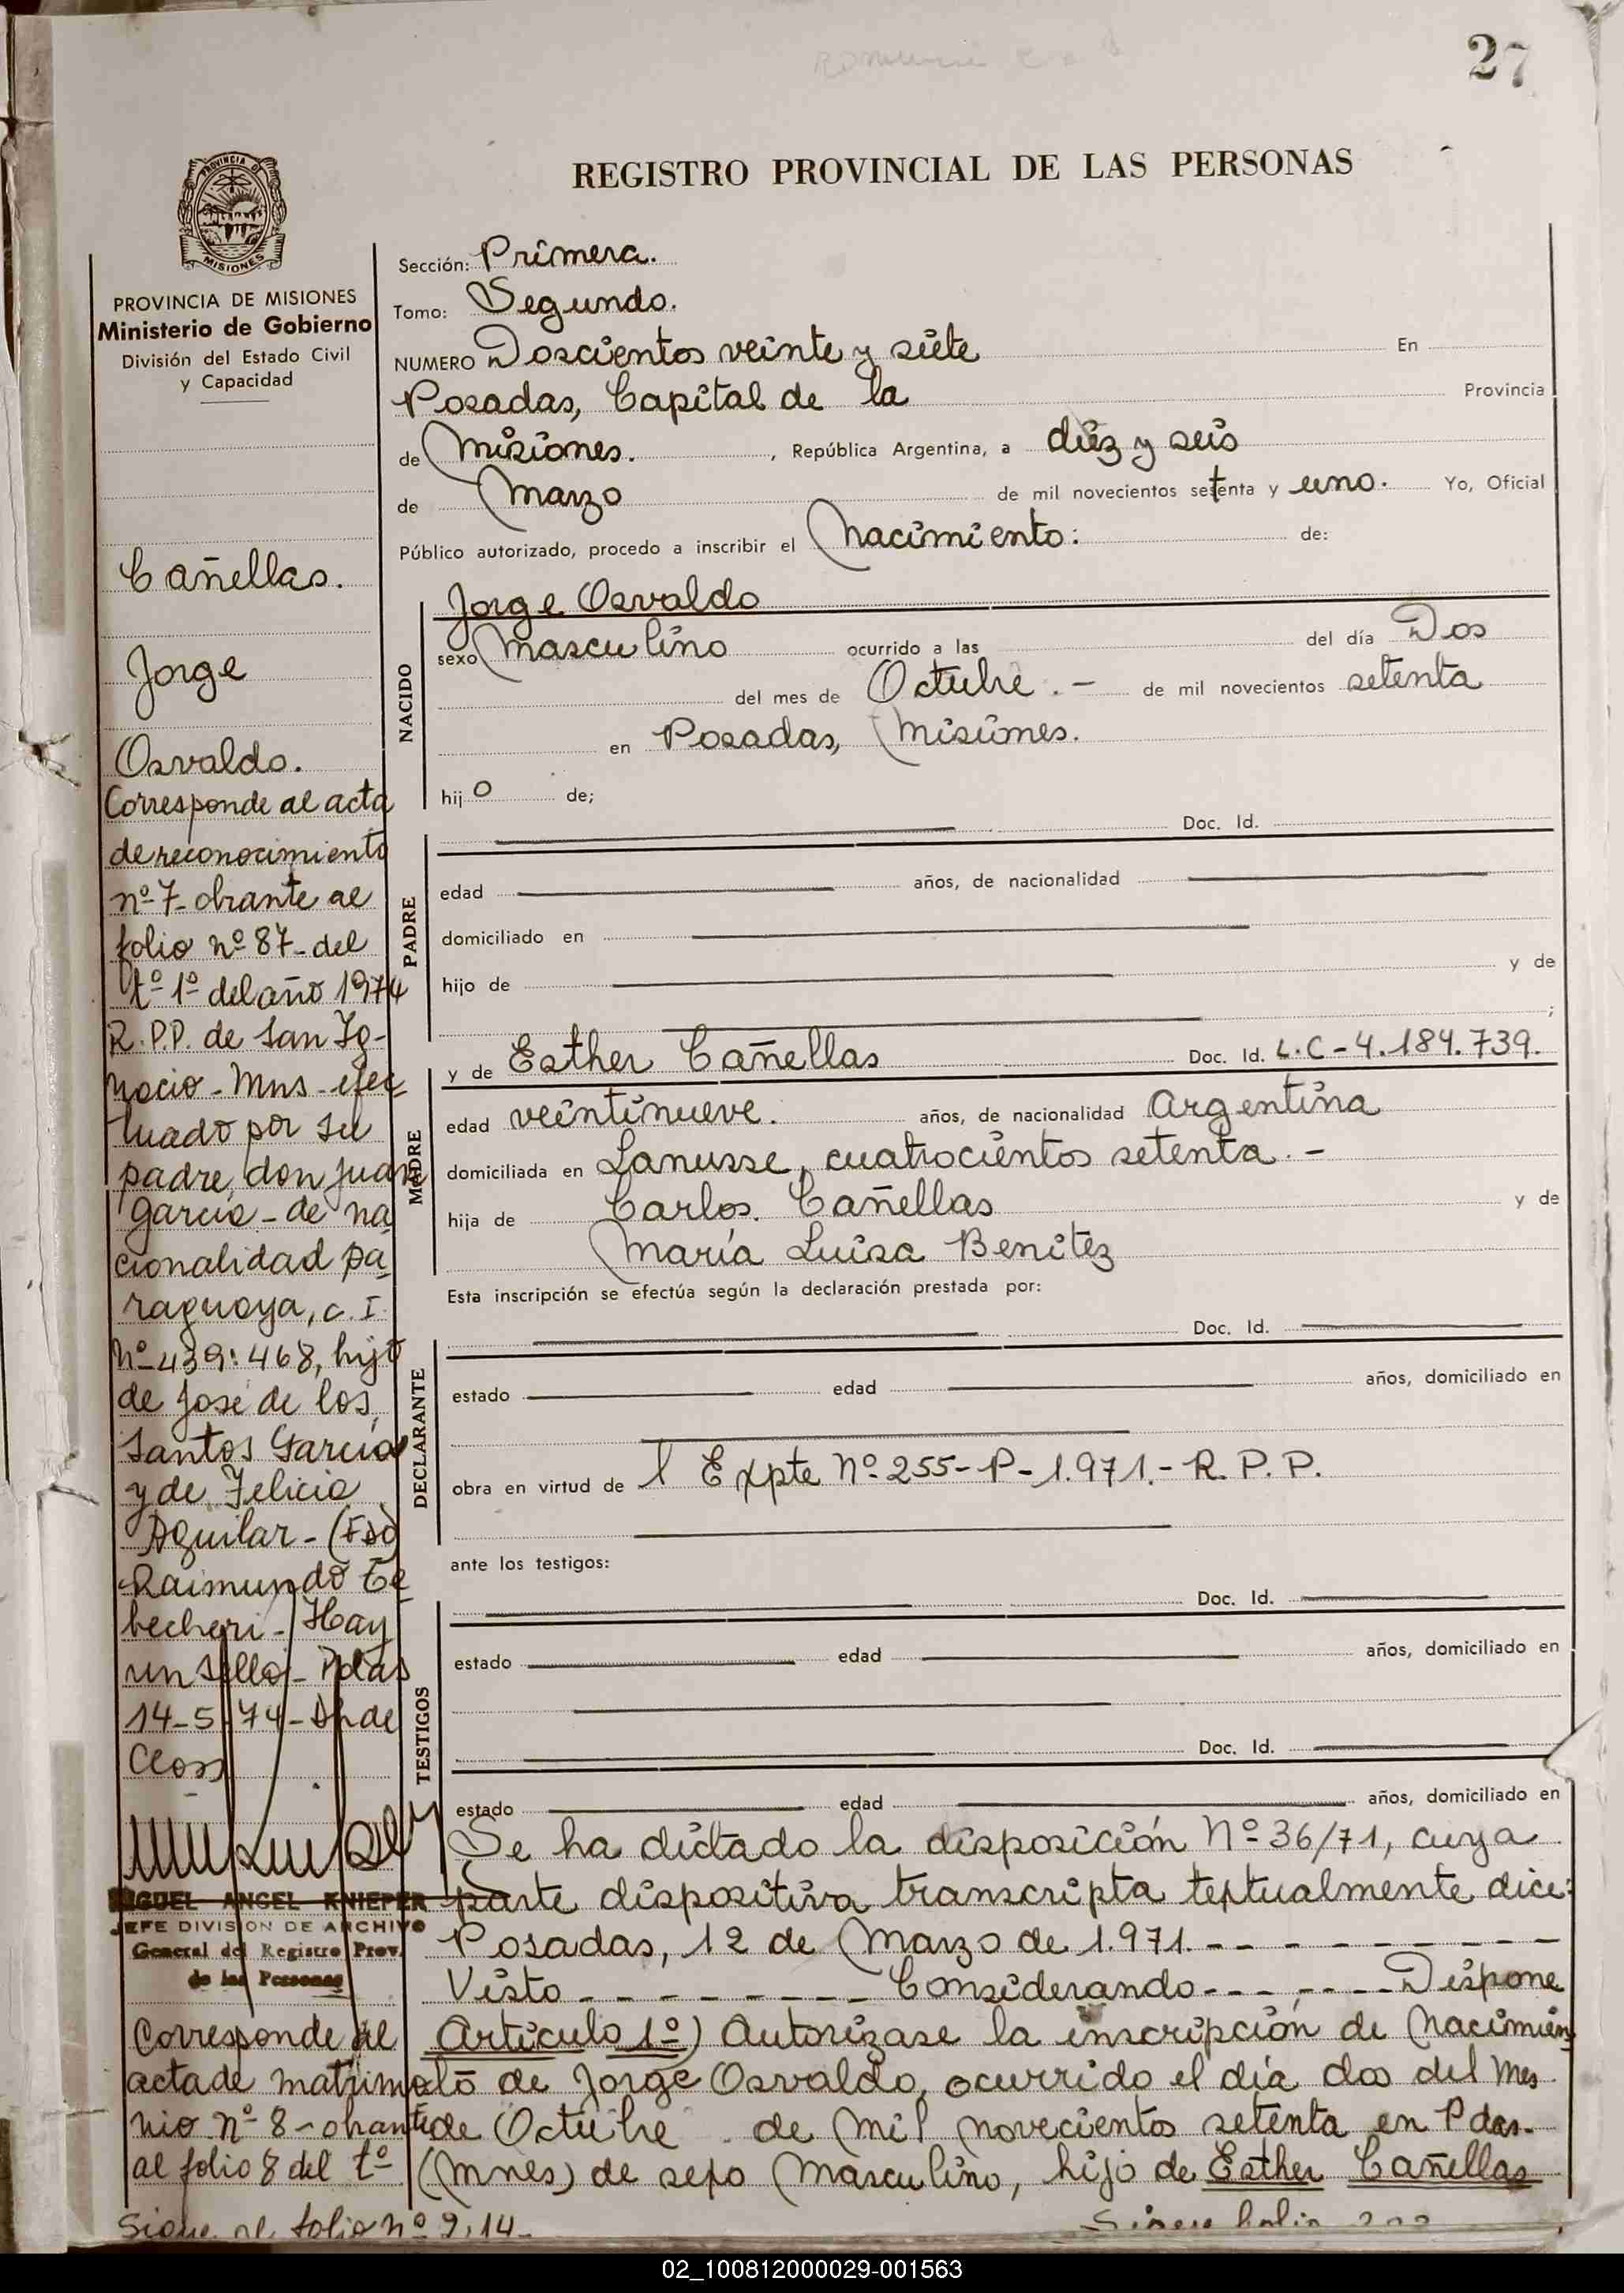 27
REGISTRO PROVINCIAL DE LAS PERSONAS
PROVINCIA DE
MISIONES
PROVINCIA DE MISIONES
Ministerio de Gobierno
División del Estado Civil
y Capacidad
Cañellas.
Jorge
Osvaldo.
Corresponde al acta
de reconocimiento
nº 7 obrante al
folio nº 87 - del
tº 1º del año 1974
R.P.P. de San Ig-
nacio - Mns - efec
tuado por su
padre, don Juan
Garcia - de na
cionalidad pa
raguaya, c. I.
Nº 439:468, hijo
de José de los
Santos García
y de Felicia
Aguilar - (Fdo)
Raimundo
Hay
un sello - Pdas
14-5-74-
MIGUEL ANGEL KNIEPER
JEFE DIVISION DE ARCHIVO
General del Registro Prov.
de las Personas
Corresponde al
acta de matrimo
nio nº 8 - obrante
al folio 8 del tº
Sigue al folio nº 9, 14-
Sección: Primera.
Tomo: Segundo.
NUMERO Doscientos veinte y siete En
Posadas, Capital de la Provincia
de Misiones. , República Argentina, a diez y seis
de Marzo de mil novecientos setenta y uno. Yo, Oficial
Público autorizado, procedo a inscribir el Nacimiento: de:
NACIDO
Jorge Osvaldo
sexo Masculino ocurrido a las del día Dos
del mes de Octubre . - de mil novecientos setenta
en Posadas, Misiones.
hijo de;
PADRE
Doc. Id.
edad años, de nacionalidad
domiciliado en
hijo de y de
;
MADRE
y de Esther Cañellas Doc. Id. L.C-4.184.739.
edad veintinueve. años, de nacionalidad Argentina
domiciliada en Lanusse, cuatrocientos setenta. -
hija de Carlos. Cañellas y de
María Luisa Benitez
Esta inscripción se efectúa según la declaración prestada por:
DECLARANTE
Doc. Id.
estado edad años, domiciliado en
obra en virtud de l Expte Nº 255-P-1.971.- R. P. P.
ante los testigos:
TESTIGOS
Doc. Id.
estado edad años, domiciliado en
Doc. Id.
estado edad años, domiciliado en
Se ha dictado la disposición Nº 36/71, cuya
parte dispositiva transcripta textualmente dice:
Posadas, 12 de Marzo de 1.971. - - - - - - - - -
Visto - - - - - - - - - Considerando - - - , - - - - Dispone
Artículo 1º) Autorizase la inscripción de Nacimien
to de Jorge Osvaldo, ocurrido el día dos del Mes
de Octubre . de Mil novecientos setenta en Pdas.
(Mnes) de sexo Masculino, hijo de Esther Cañellas
02_100812000029-001563